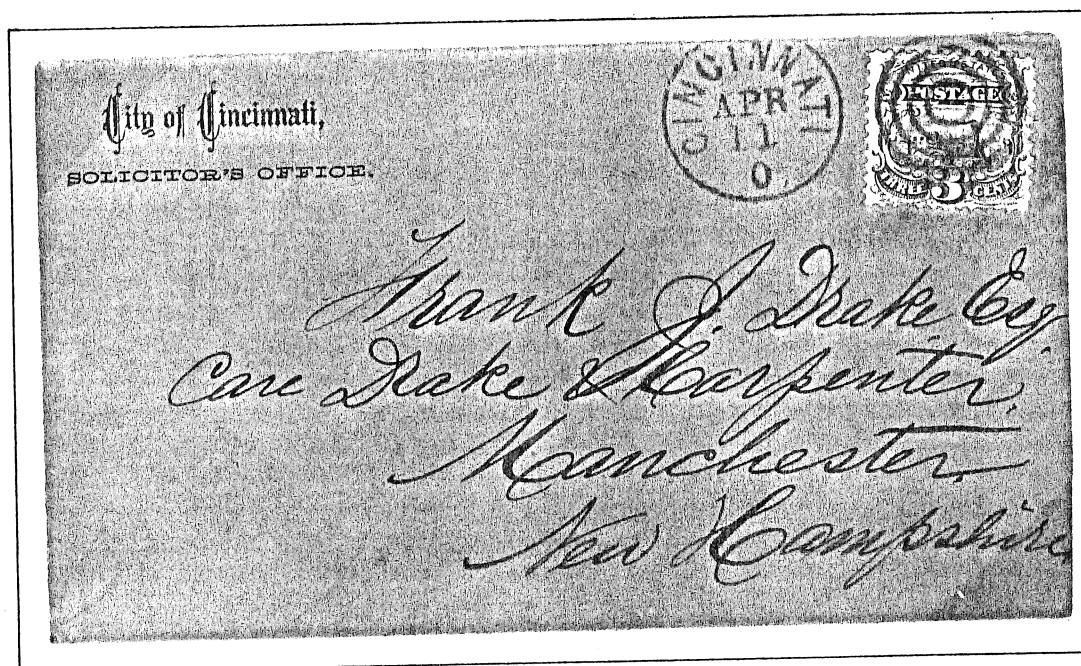 City of Cincinnati,
SOLICITOR'S OFFICE.
CINCINNATI
APR
11
O
POSTAGE
THREE 3 CENTS
Frank J. Drake Esq
Care Drake & Carpenter.
Manchester
New Hampshire